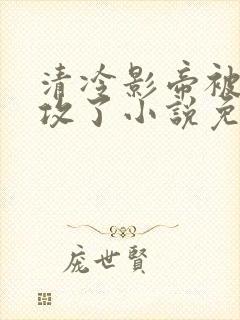 清冷影帝被
攻了小說免
庞世賢